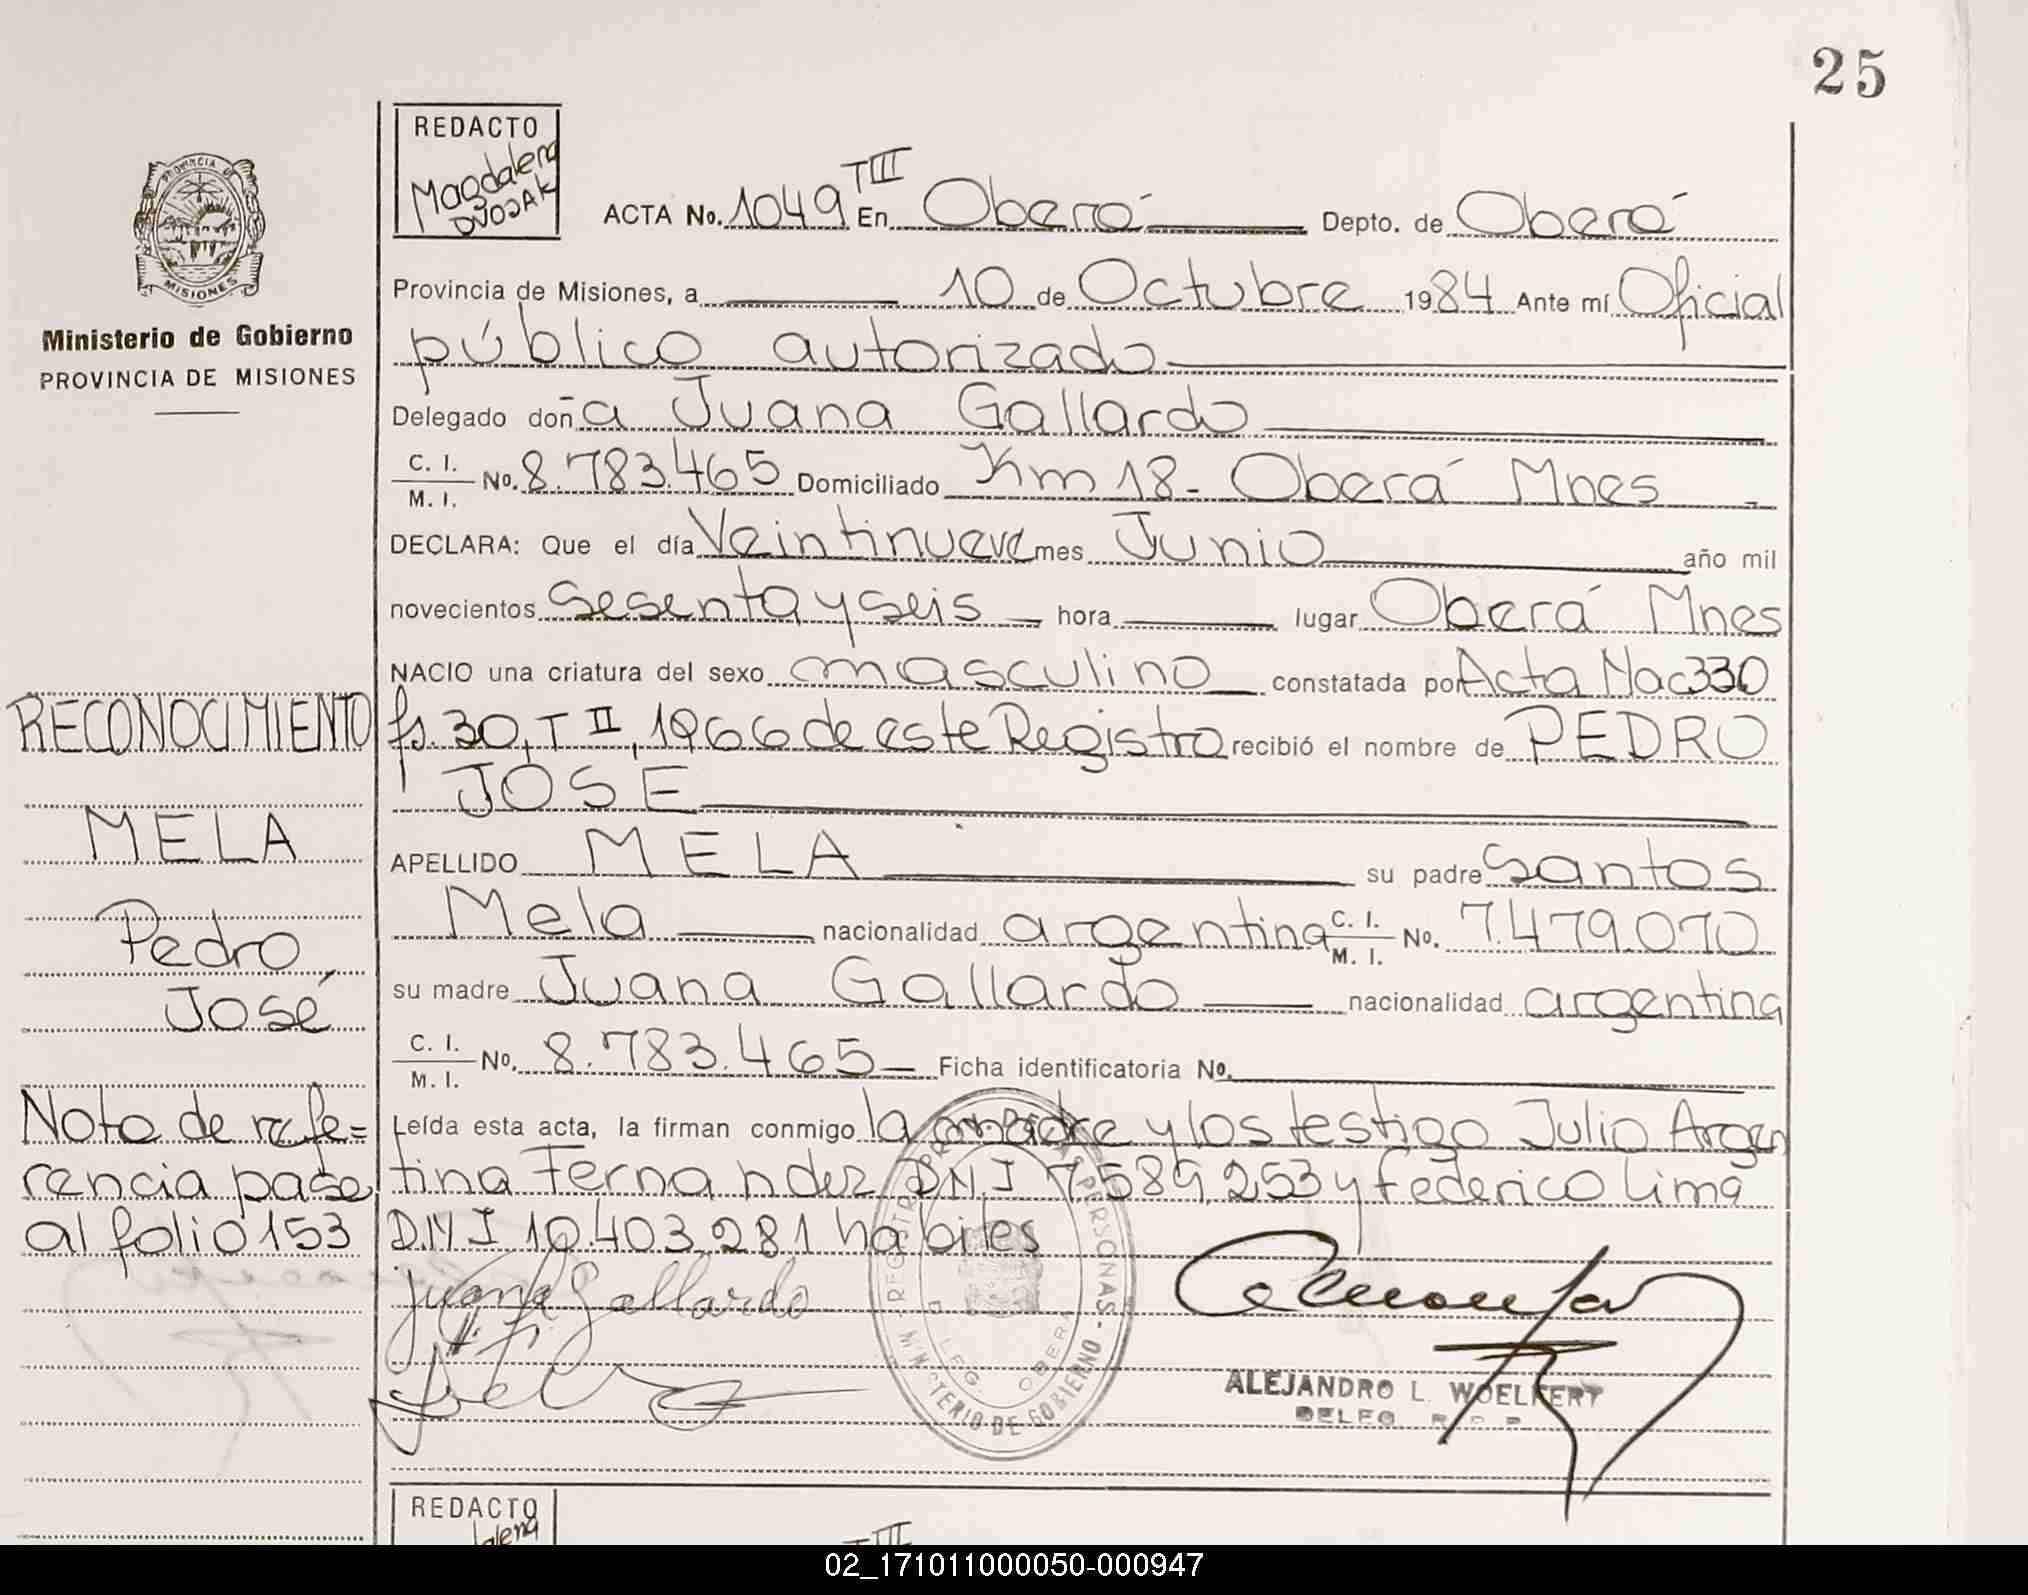 25
REDACTO
Magdalena
DVOJAK
PROVINCIA DE
MISIONES
Ministerio de Gobierno
PROVINCIA DE MISIONES
ACTA No. 1049 TIII En Oberá Depto. de Oberá
Provincia de Misiones, a 10 de Octubre 1984 Ante mí Oficial
público autorizado
Delegado doña Juana Gallardo
C. I.
M. I. No. 8.783.465 Domiciliado Km 18 - Oberá Mnes
DECLARA: Que el día Veintinueve mes Junio año mil
novecientos sesenta y seis hora lugar Oberá Mnes
NACIO una criatura del sexo masculino constatada por Acta Nac 330
fs. 30, T II, 1966 de este Registro recibió el nombre de PEDRO
JOSE
APELLIDO MELA su padre Santos
Mela nacionalidad argentina C. I.
M. I. No. 7.479.070
su madre Juana Gallardo nacionalidad argentina
C. I.
M. I. No. 8.783.465 Ficha identificatoria No.
Leída esta acta, la firman conmigo la madre y los testigo Julio Argen
tina Fernandez D.N.I 7.589.253 y Federico Lima
D.N I 10.403.281 habiles
RECONOCIMIENTO
MELA
Pedro
José
Nota de refe=
rencia pase
al folio 153
Juana Gallardo
REGISTRO PROV. DE LAS PERSONAS
MINISTERIO DE GOBIERNO
DELEG. OBERA
ALEJANDRO L. WOELFERT
DELEG. R. P. P.
REDACTO
TIII
02_171011000050-000947